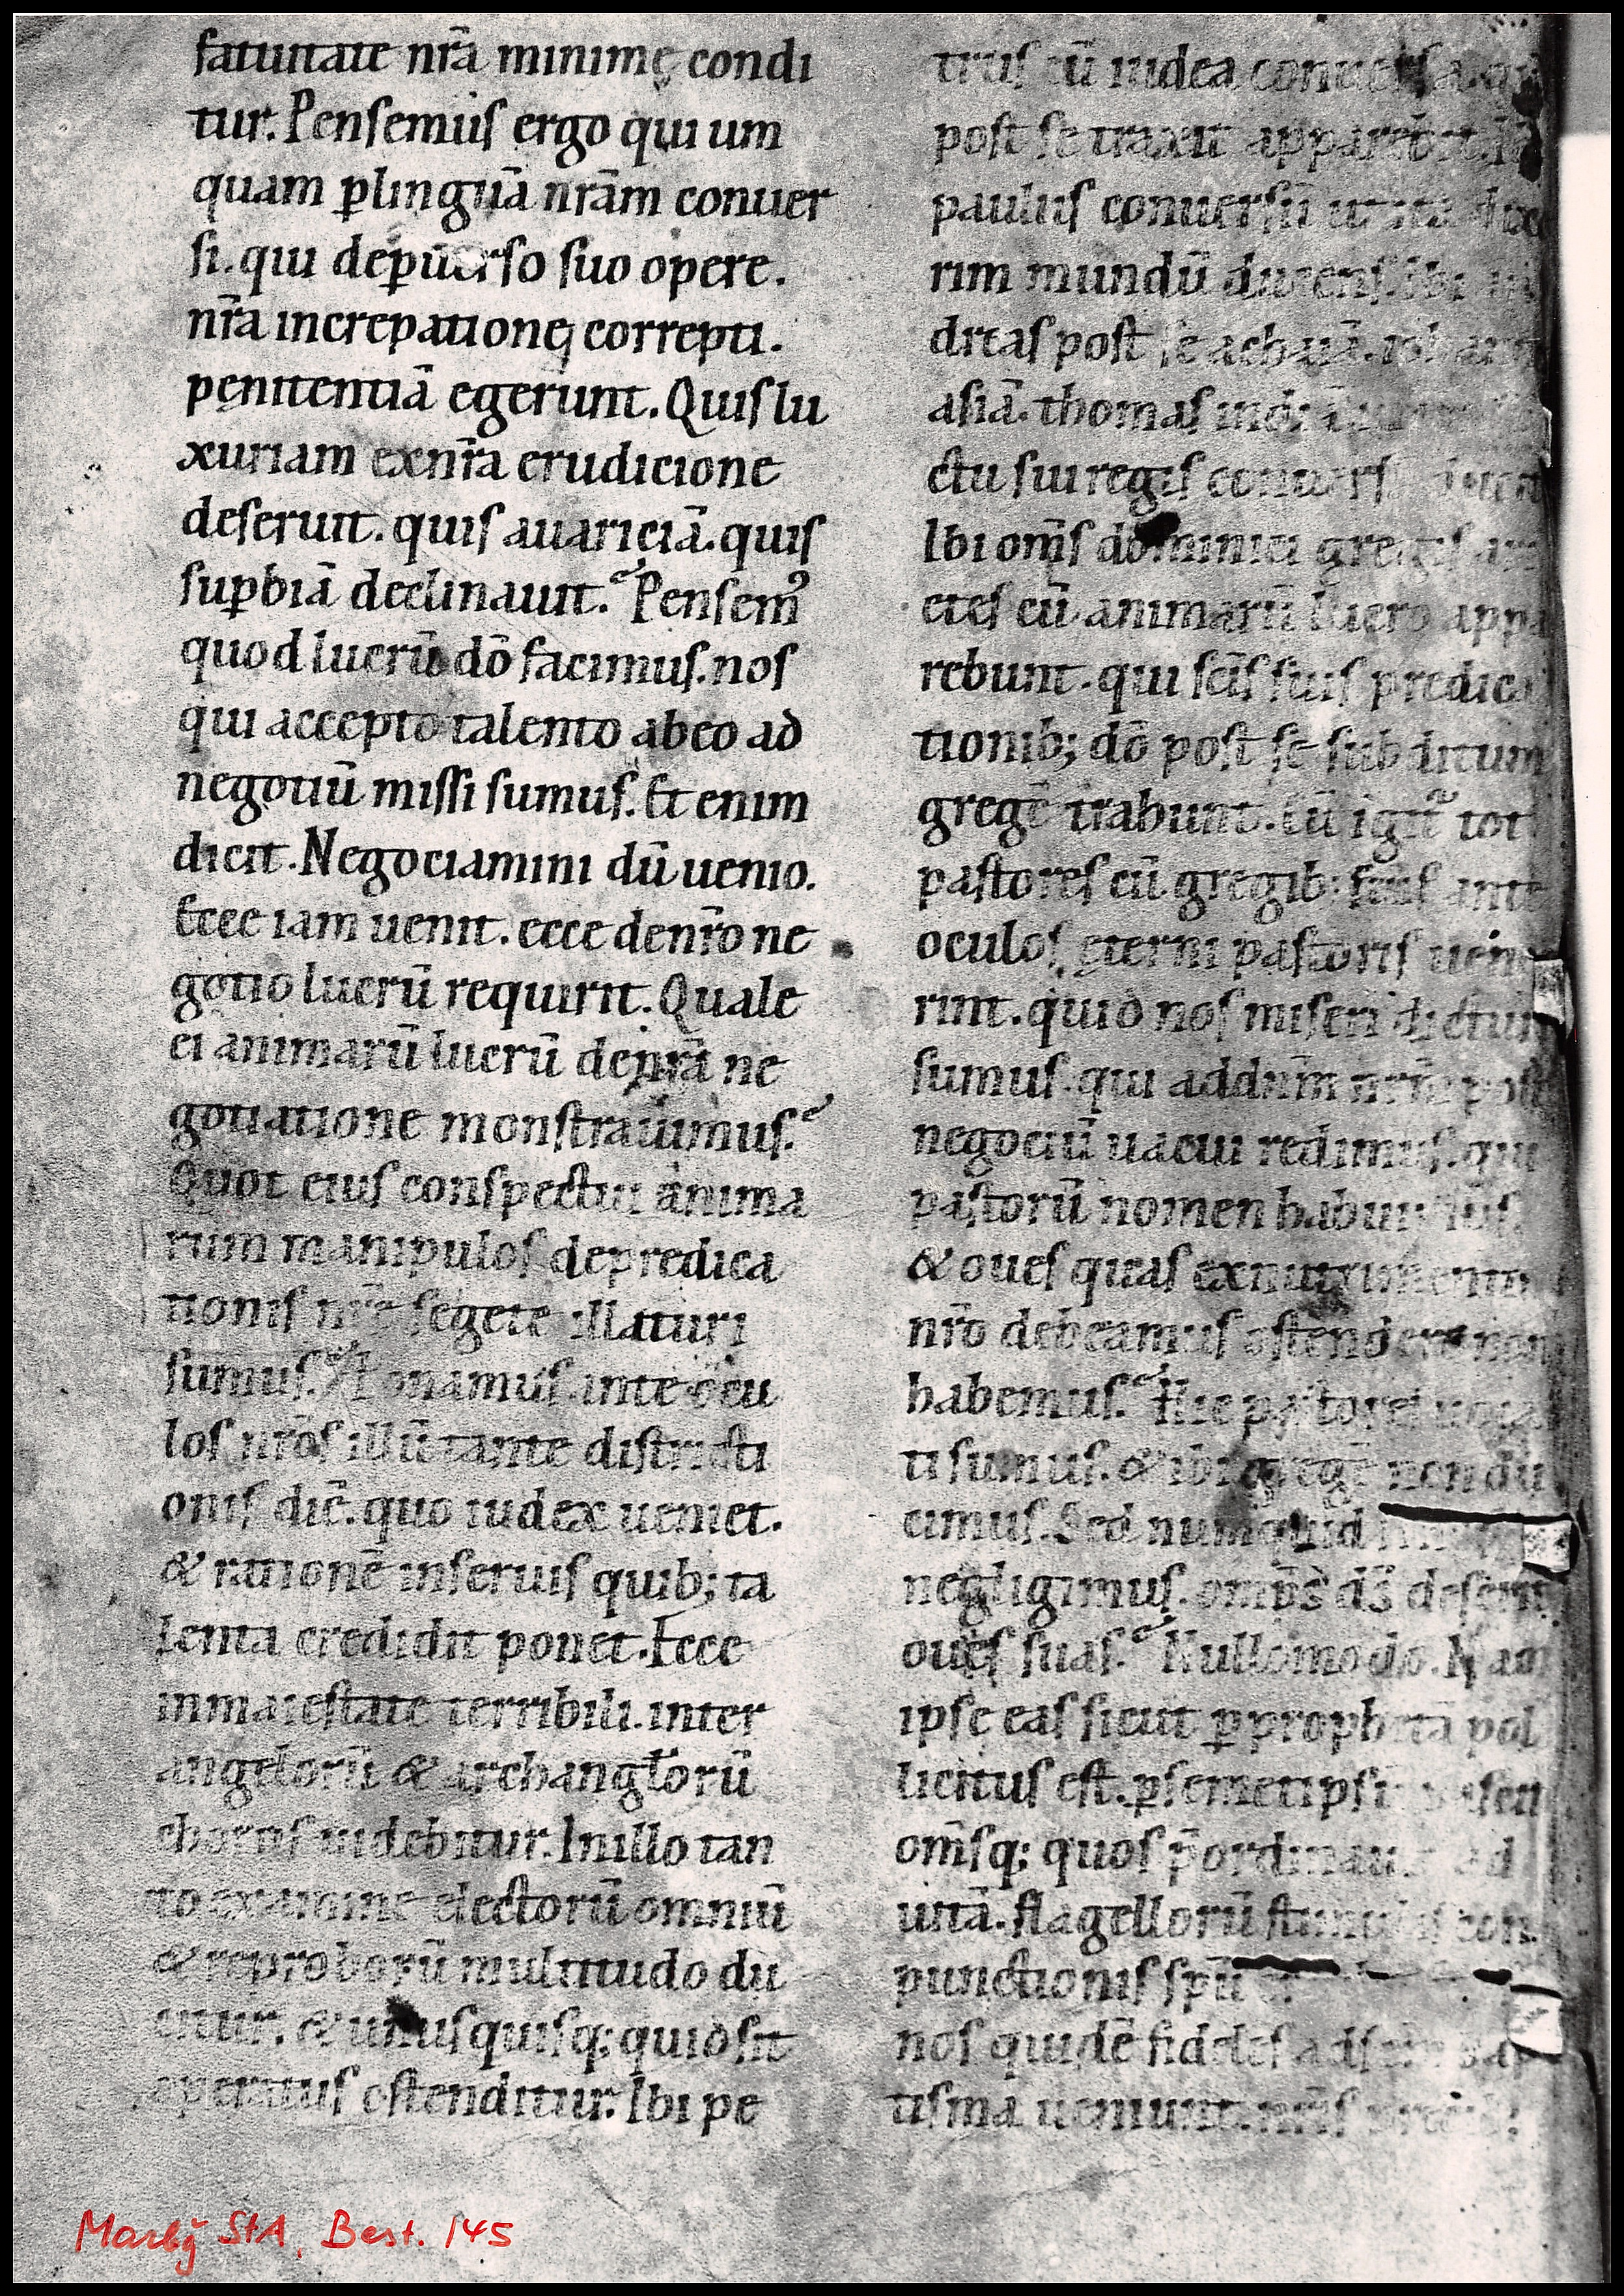 fatuitate nr̄a minimę condi
tur. Penſemuſ ergo qui um
quam ꝑlinguā nrām conuer
ſi. qui deꝑuerſo ſuo opere.
nr̄a increpationę correpti.
pęnitentiā egerunt. Quiſ lu
xuriam exnr̄a erudicione
deſeruit. quiſ auariciā. quiſ
ſuꝑbiā declinauit. Penſemꝰ
quod lucrū dō facimuſ. noſ
qui accepto talento abeo ad
negotiū miſſi ſumuſ. Et enim
dicit. Negociamini dū uenio.
Ecce iam uenit. ecce denr̄o ne
gotio lucrū requirit. Quale
ei animarū lucrū denrā ne
gotiatione monſtrauimuſ.
Quot eiuſ conſpectui anima
rum manipuloſ depredica
tioniſ nrē ſegete illaturi
ſumuſ. Ponamuſ ante ocu
loſ nrōſ illū tante diſtricti
oniſ diē. quo iudex ueniet.
& rationē inſeruiſ quib; ta
lenta credidit ponet. Ecce
inmaieſtate terribili. inter
angelorū & archanglorū
choroſ uidebitur. Inillo tan
to examine electorū omniū
& reproborū multitudo du
cetur. & unuſquiſq; quid ſit
operatuſ oſtenditur. Ibi pe
truſ cū iudea conuerſa. 
poſt ſe traxit apparebit.
pauluſ conuerſū ut ita
rim mundū ducenſ. ibi
dreaſ poſt ſe achaiā.
aſiā. thomaſ
ctu ſui regiſ
Ibi om̄ſ dominici gregiſ
eteſ cū animarū lucro appa
rebunt. qui ſciſ ſuiſ predica
tionib; dō poſt ſe ſubditum
gregē trahunt. Cū igit̄ tot
paſtoreſ cū gregib; ſuiſ ante
oculoſ ęterni paſtoriſ uene
rint. quid noſ miſeri dicturi
ſumuſ. qui addnm̄ nrm̄ poſt
negociū uacui redimuſ. qui
paſtorū nomen habuimuſ.
& oueſ quaſ exnutrimento
nr̄o debeamuſ oſtendere non
habemuſ. Hic paſtoreſ uoca
ti ſumuſ. & ibi gregē non du
cimuſ. Sed numquid
negligimuſ. omp̄s dſ̄ deſerit
oueſ ſuaſ. Nullomodo. Nam
ipſe eaſ ſicut ꝑ prophetā pol
licituſ eſt. ꝑſemetipſū
om̄ſq; quoſ p̄ordinauit ad
uitā. flagellorū ſtimuliſ con
punctioniſ ſpū
noſ quidē fideleſ adſcm̄ bap
tiſma ueniunt.
Marbg StA, Best. 145